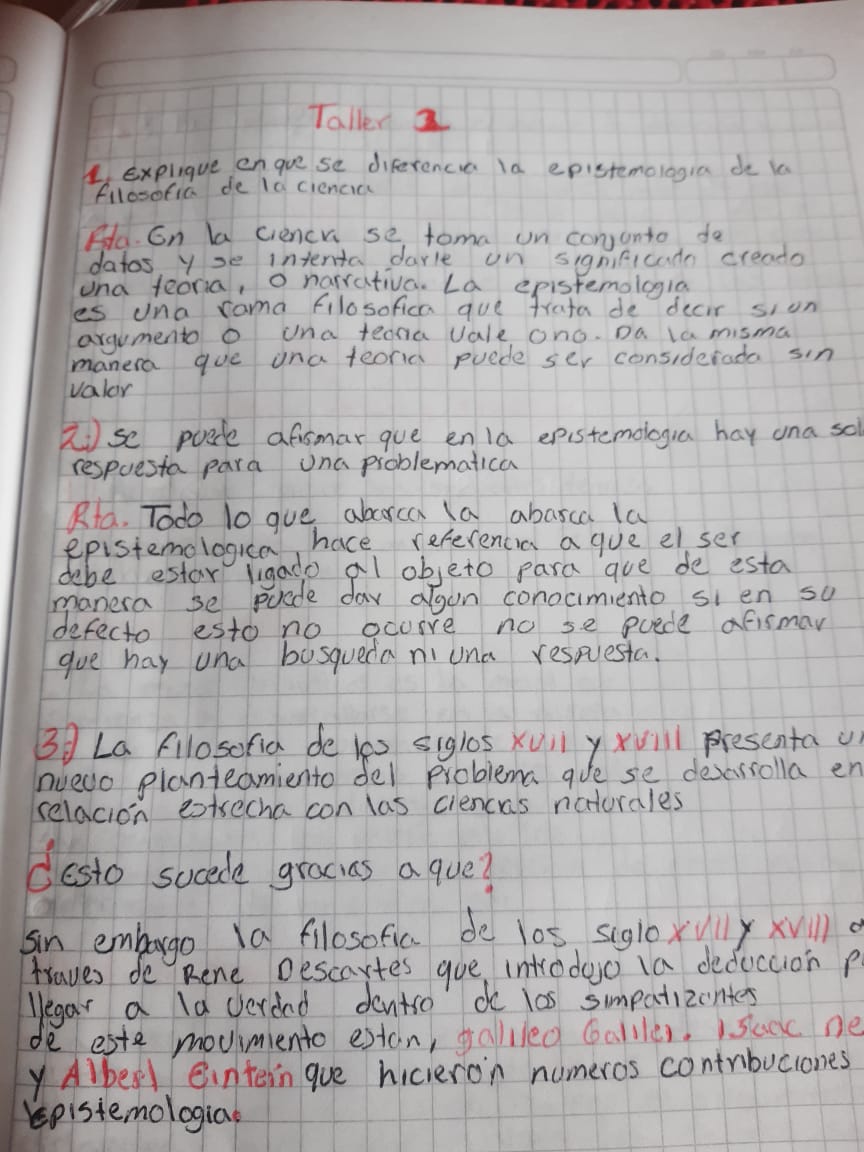 Taller 1
1. Explique en que se diferencia la epistemologia de la
filosofia de la ciencia
Rta. En la ciencia se toma un conjunto de
datos y se intenta darle un significado creado
una teoria, o narrativa. La epistemologia
es una rama filosofica que trata de decir si un
argumento o una teoria vale o no. Da la misma
manera que una teoria puede ser considerada sin
valor
2.) se puede afirmar que en la epistemologia hay una sol
respuesta para una problematica
Rta. Todo lo que abarca la abarca la
epistemologica hace referencia a que el ser
debe estar ligado al objeto para que de esta
manera se puede dar algun conocimiento si en su
defecto esto no ocurre no se puede afirmar
que hay una busqueda ni una respuesta.
3.) La filosofia de los siglos XVII y XVIII presenta un
nuevo planteamiento del problema que se desarrolla en
relación estrecha con las ciencias naturales
¿Esto sucede gracias a que?
sin embargo la filosofia de los siglo XVII y XVIII a
traves de Rene Descartes que introdujo la deducción p
llegar a la verdad dentro de los simpatizantes
de este movimiento estan, galileo Galilei. Isaac Ne
y Albert Eintein que hicieron numeros contribuciones
epistemologia.